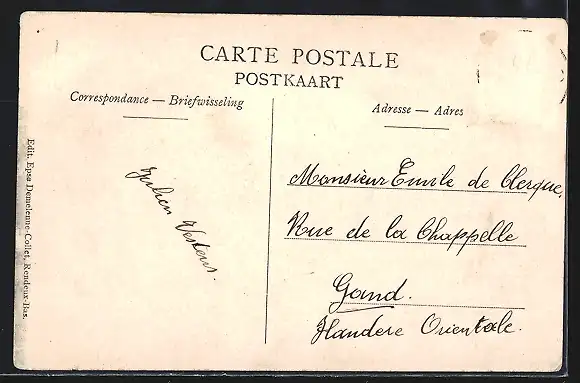 CARTE POSTALE
POSTKAART
Correspondance — Briefwisseling
Adresse — Adres
Edit. Epsa Demelenne-Collet, Rendeux-Bas.
Julien Vestens.
Monsieur Emile de Clerque,
Rue de la Chappelle
Gand.
Flandere Orientale.